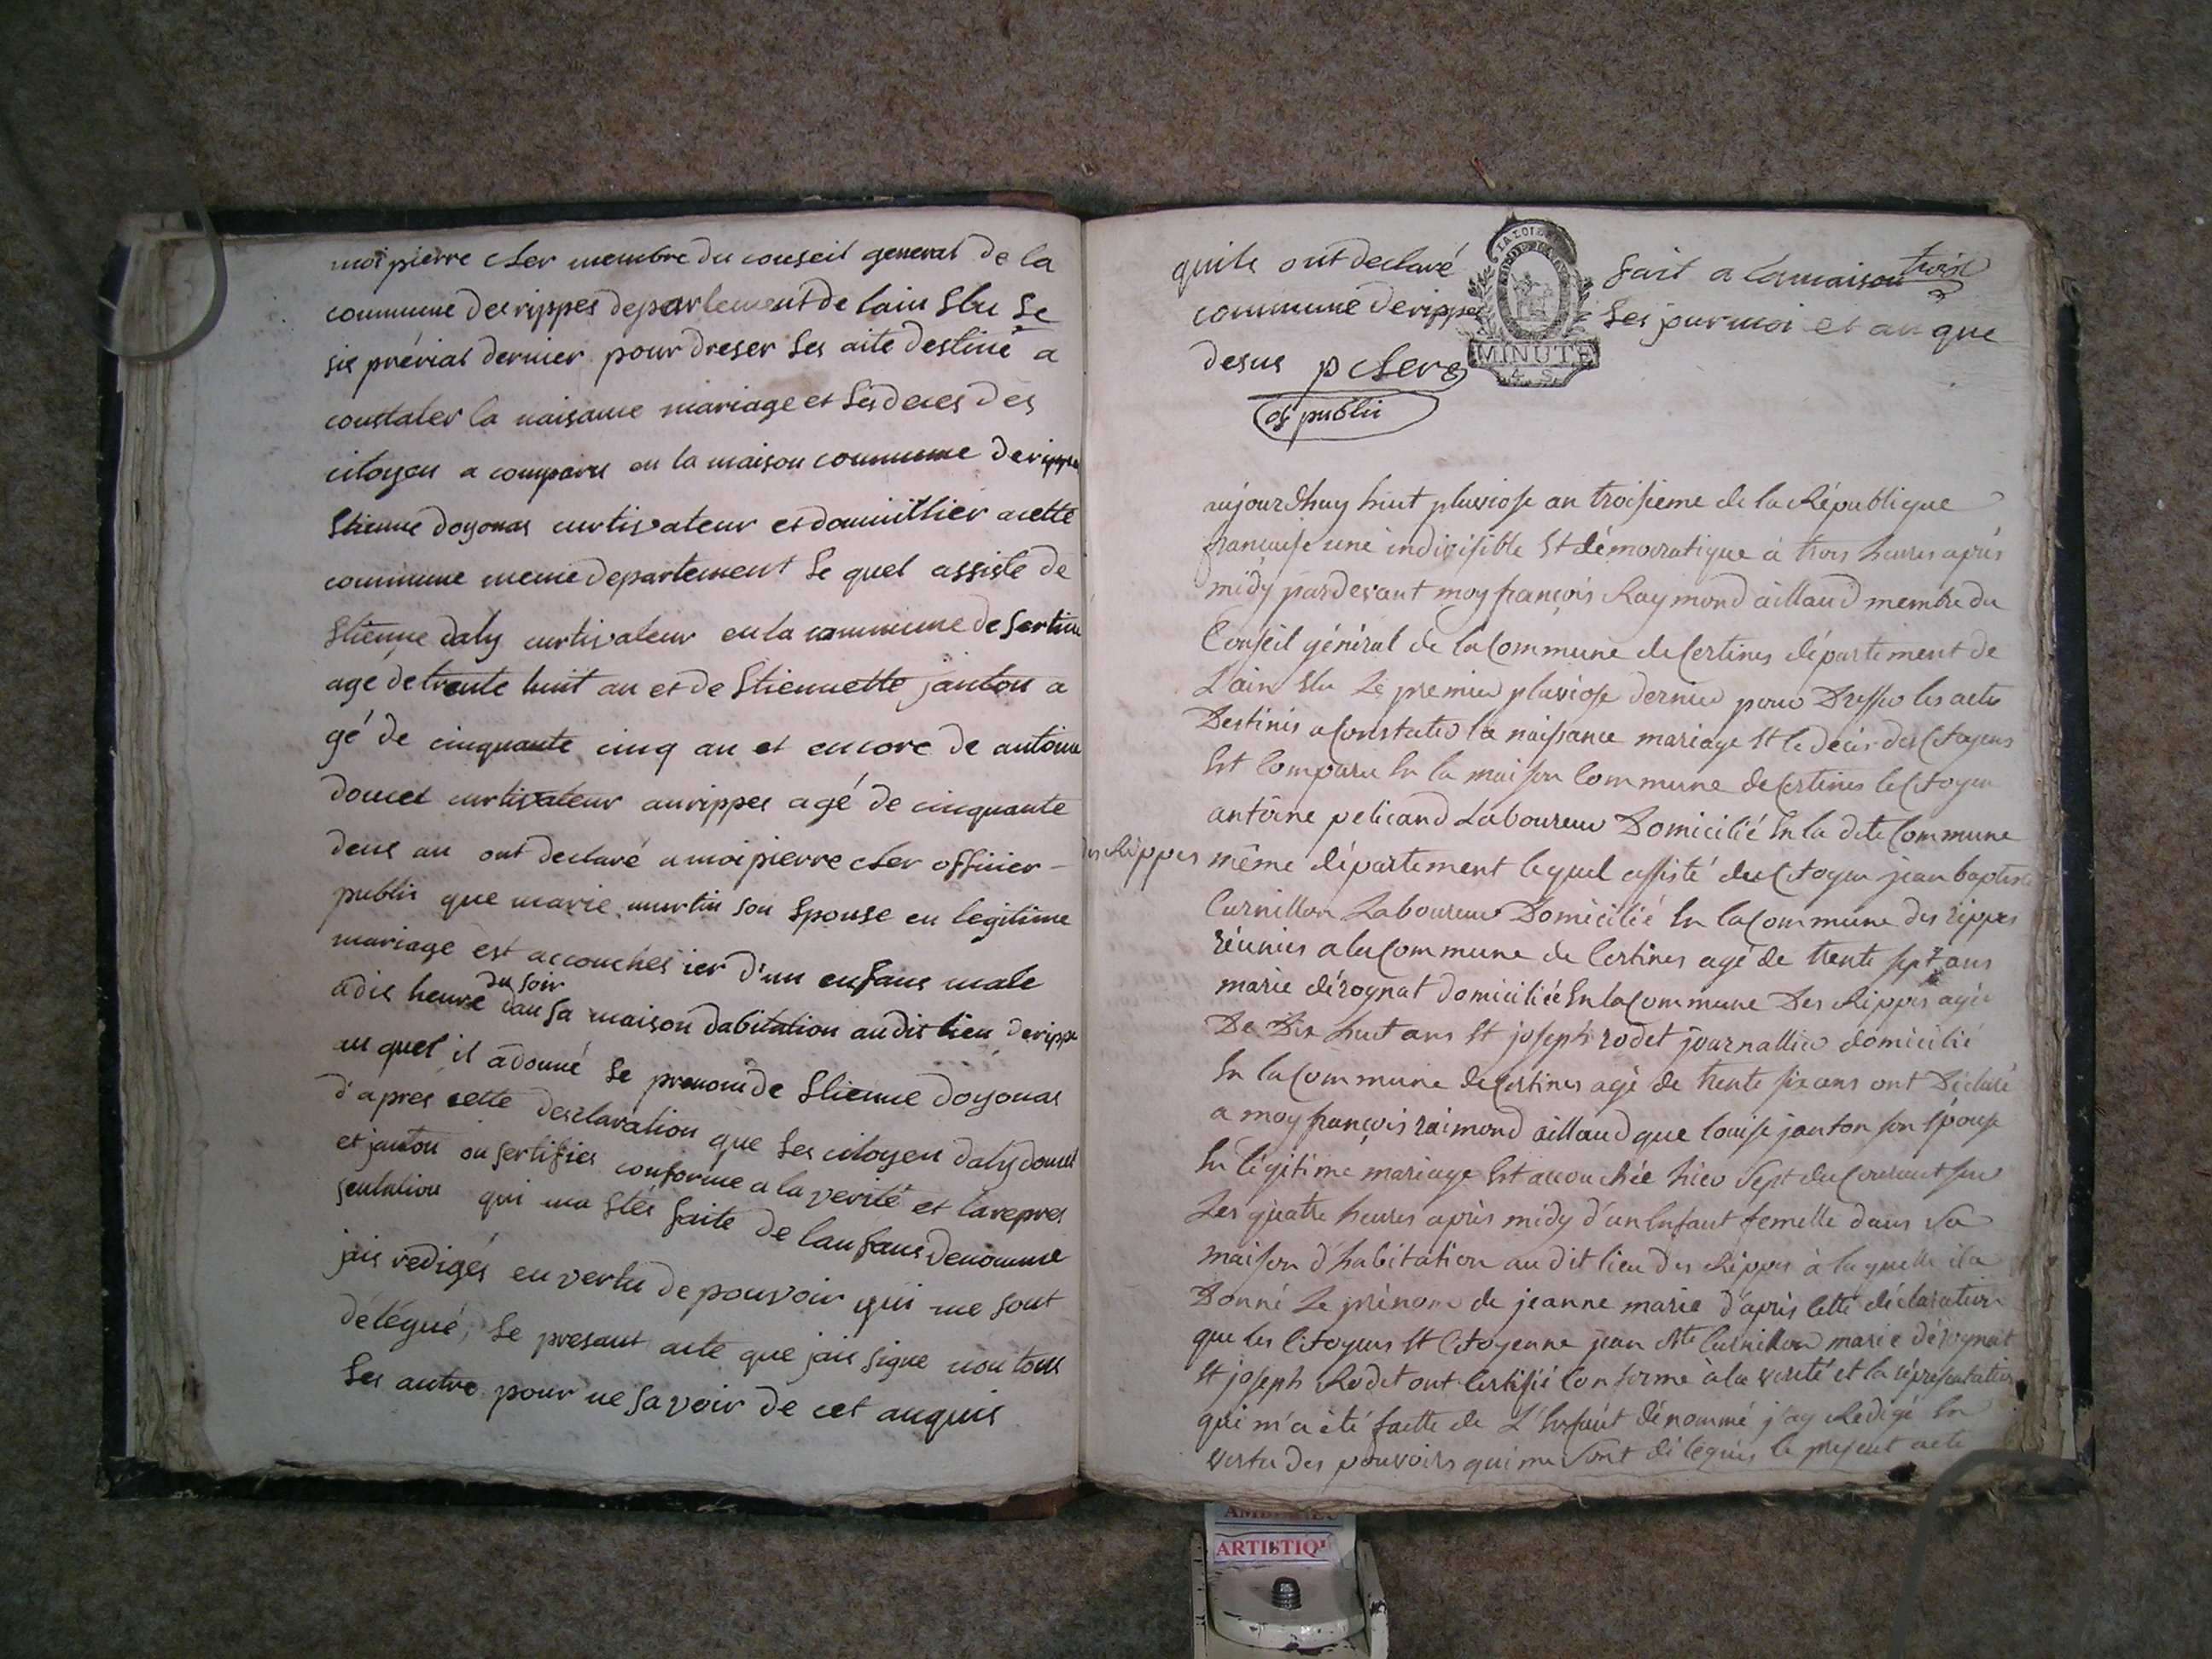 moi pierre cler membre du conseil general de la
commune des rippes departement de lain Elu Le
sis prérial dernier pour dreser Les aite destiné a
constater la naisance mariage et Les deces des
citoyen a comparu en la maison commune de rippes
Etienne doyonas curtivateur et domicillier a cette
commune meme departement Le quel assiste de
Etienne daly curtivateur en la commune de Sertine
agé de trente huit an et de Etiennette janton a
gé de cinquante cinq an et encore de antoine
doucet curtivateur au rippes agé de cinquante
deus an ont declaré a moi pierre cler officier
public que marie murtin son Epouse en legitime
mariage est accouches ier d'un enfans male
a dis heure du soir dan sa maison dabitation audit lieu de rippe
au quel il a donné Le prenom de Etienne doyonas
d'apres cette desclaration que Les citoyen daly doucet
et janton on sertifies conforme a la verité et la repres
sentation qui ma Etés faite de lanfans denomme
jais rediges en vertu de pouvoir qui me sont
délégué, Le presant acte que jais signe non tous
Les autre pour ne savoir de cet anquis
quils ont declaré fait a la maison
commune de rippes Les jour moi et an que
desus p cler
of public
LA LOI
MINUTE
4 S
aujourdhuy huit pluviose an troisieme de la République
francaise une indivisible Et démocratique à trois heures après
midy pardevant moy françois Raymond aillaud membre du
Conseil général de la Commune de Certines département de
L'ain Elu Le premier pluviose dernier pour Dresser les actes
Destinés a Constater la naissance mariage Et le décès des Citoyens
Est Comparu En la maison Commune de Certines le Citoyen
antoine pelicand Laboureur Domicilié En la dite Commune
des Rippes même département lequel assisté du Citoyen jean baptiste
Curnillon Laboureur Domicilié En la Commune des rippes
réunies a la Commune de Certines agé de trente sept ans
marie dérognat domiciliée En la Commune Des Rippes agée
De Dix huit ans Et joseph rodet journallier domicilié
En la Commune de Certines agé de trente six ans ont Déclaré
a moy françois raimond aillaud que louise janton son Epouse
En légitime mariage Est accouchée hier Sept du Courant sur
Les quatre heures après midy d'un Enfant femelle dans Sa
maison d'habitation au dit lieu des Rippes à laquelle il a
Donné Le prénom de jeanne marie d'après cette déclaration
que les Citoyens Et Citoyenne jean Bte Curnillon marie dérognat
Et joseph Rodet ont Certifié Conforme à la verité et la répresentation
qui m'a été faitte de L'Enfant dénommé j'ay Redigé En
vertu des pouvoirs qui me Sont délégués le présent acte
AMBERIEU
ARTISTIQ